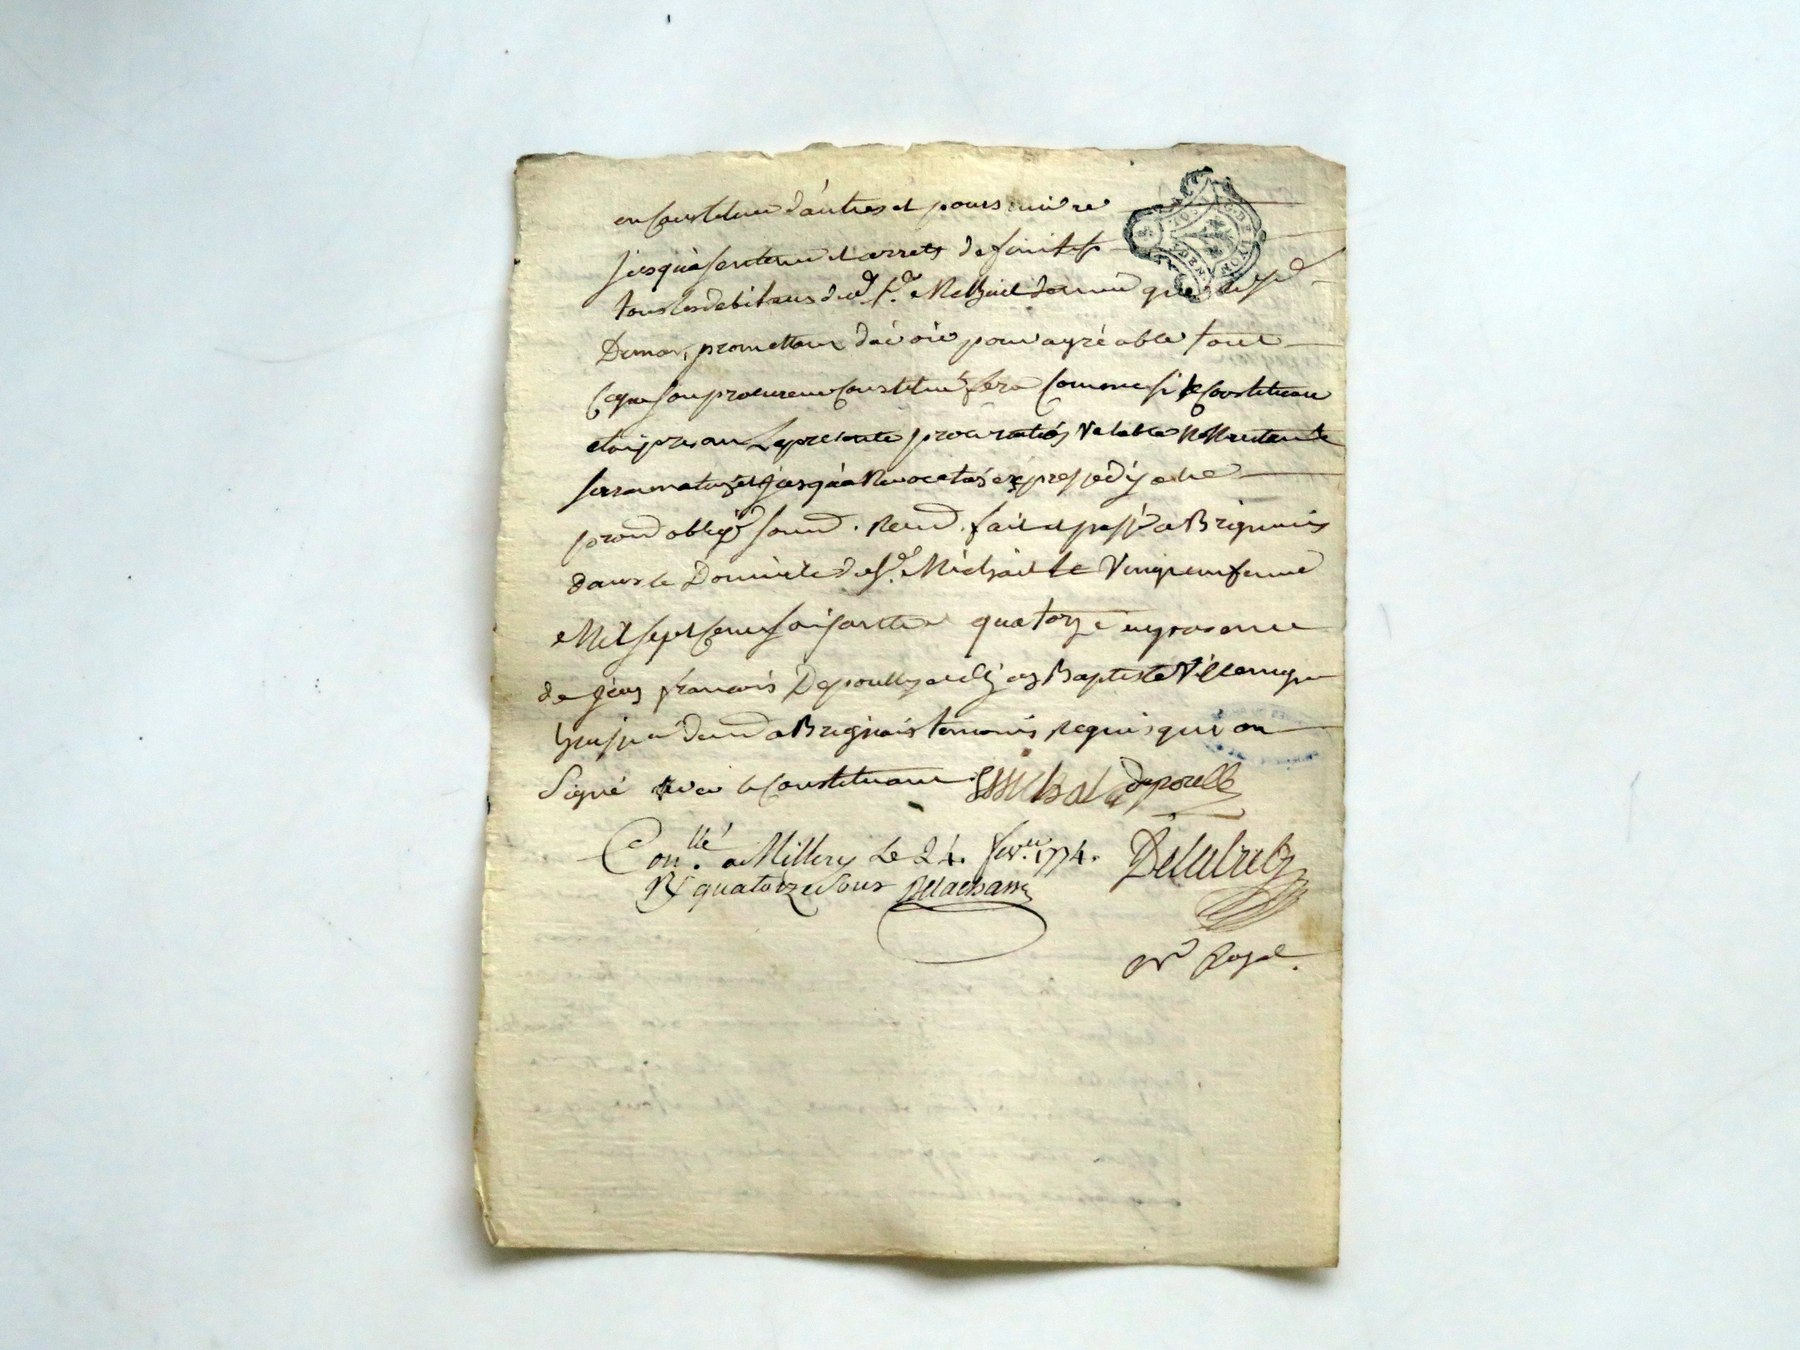 en constituer d'autres et poursuivre
jusqu'a sentence et arrets definitifs
tous les debiteurs dud. Sr. Michail
promettant d'avoir pour agréable tout
ce que son procureur constitué fera comme si le constituant
etoit present La presente procuration valable nonobstant
surannation et jusqu'a Revocation expresse d'ycelle
prom obliga soum. Renon. fait et passé a Brignais
dans le Domicile du Sr. Michail Le Vingt un fevrier
Mil sept cent soixante quatorze en presence
de jean françois Depoully et de jean Baptiste Villemagne
demt a Brignais temoins requis qui ont
Signé avec le constituant. Michal depoully
Conllé a Millery Le 24. fevrier 1774.
R quatorze sous Delachasse
Delubulz
nre Royal.